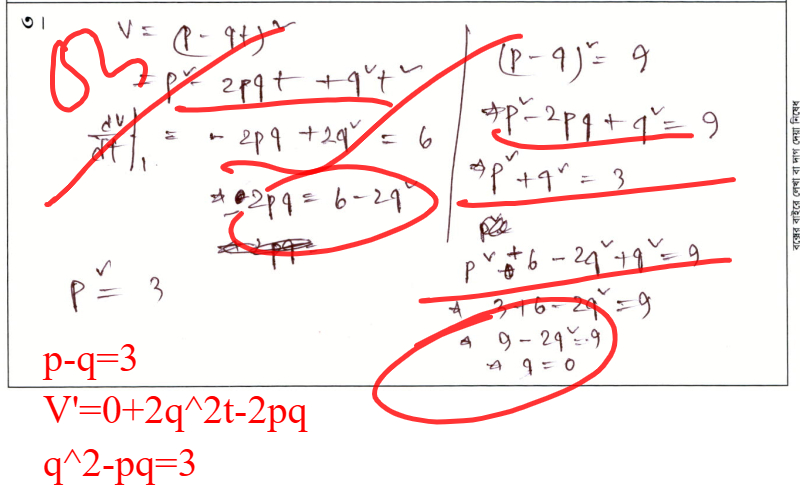 ৩।
V = (p - qt)²
= p² - 2pqt + q²t²
dv/dt]₁ = - 2pq + 2q² = 6
⇒ -2pq = 6 - 2q²
p² = 3
(p - q)² = 9
⇒ p² - 2pq + q² = 9
⇒ p² + q² = 3
p² + 6 - 2q² + q² = 9
⇒ 3 + 6 - 2q² = 9
⇒ 9 - 2q² = 9
⇒ q = 0
বক্সের বাইরে লেখা বা দাগ দেয়া নিষেধ
p-q=3
V'=0+2q^2t-2pq
q^2-pq=3